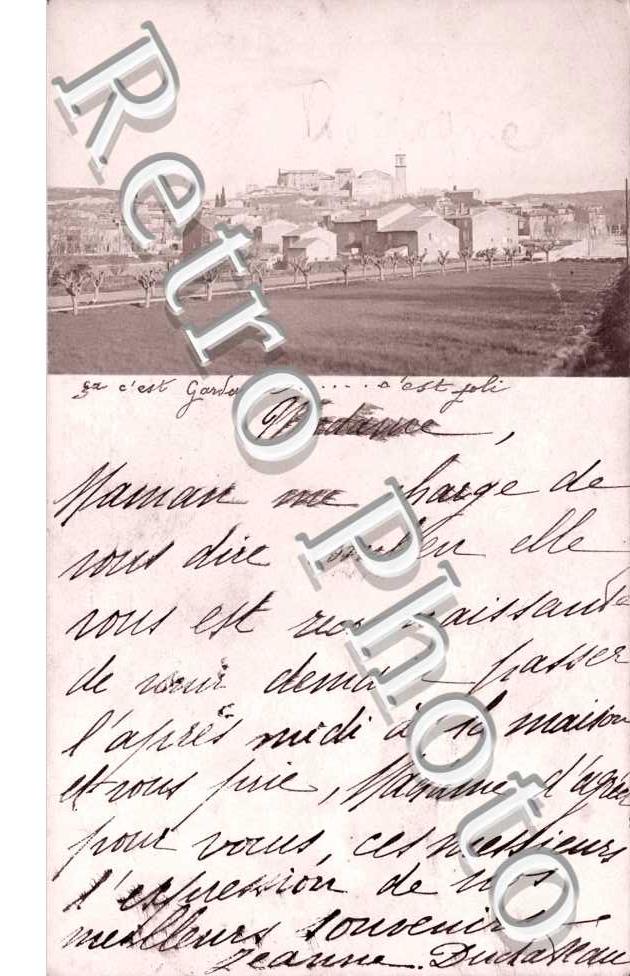 Retro Photo
ça c'est Garda ..... c'est joli
Madame,
Maman me charge de
vous dire combien elle
vous est reconnaissante
de venir demain passer
l'après midi à la maison
et vous prie, Madame, d'agréer
pour vous, ces messieurs
l'expression de nos
meilleurs souvenirs
Jeanne